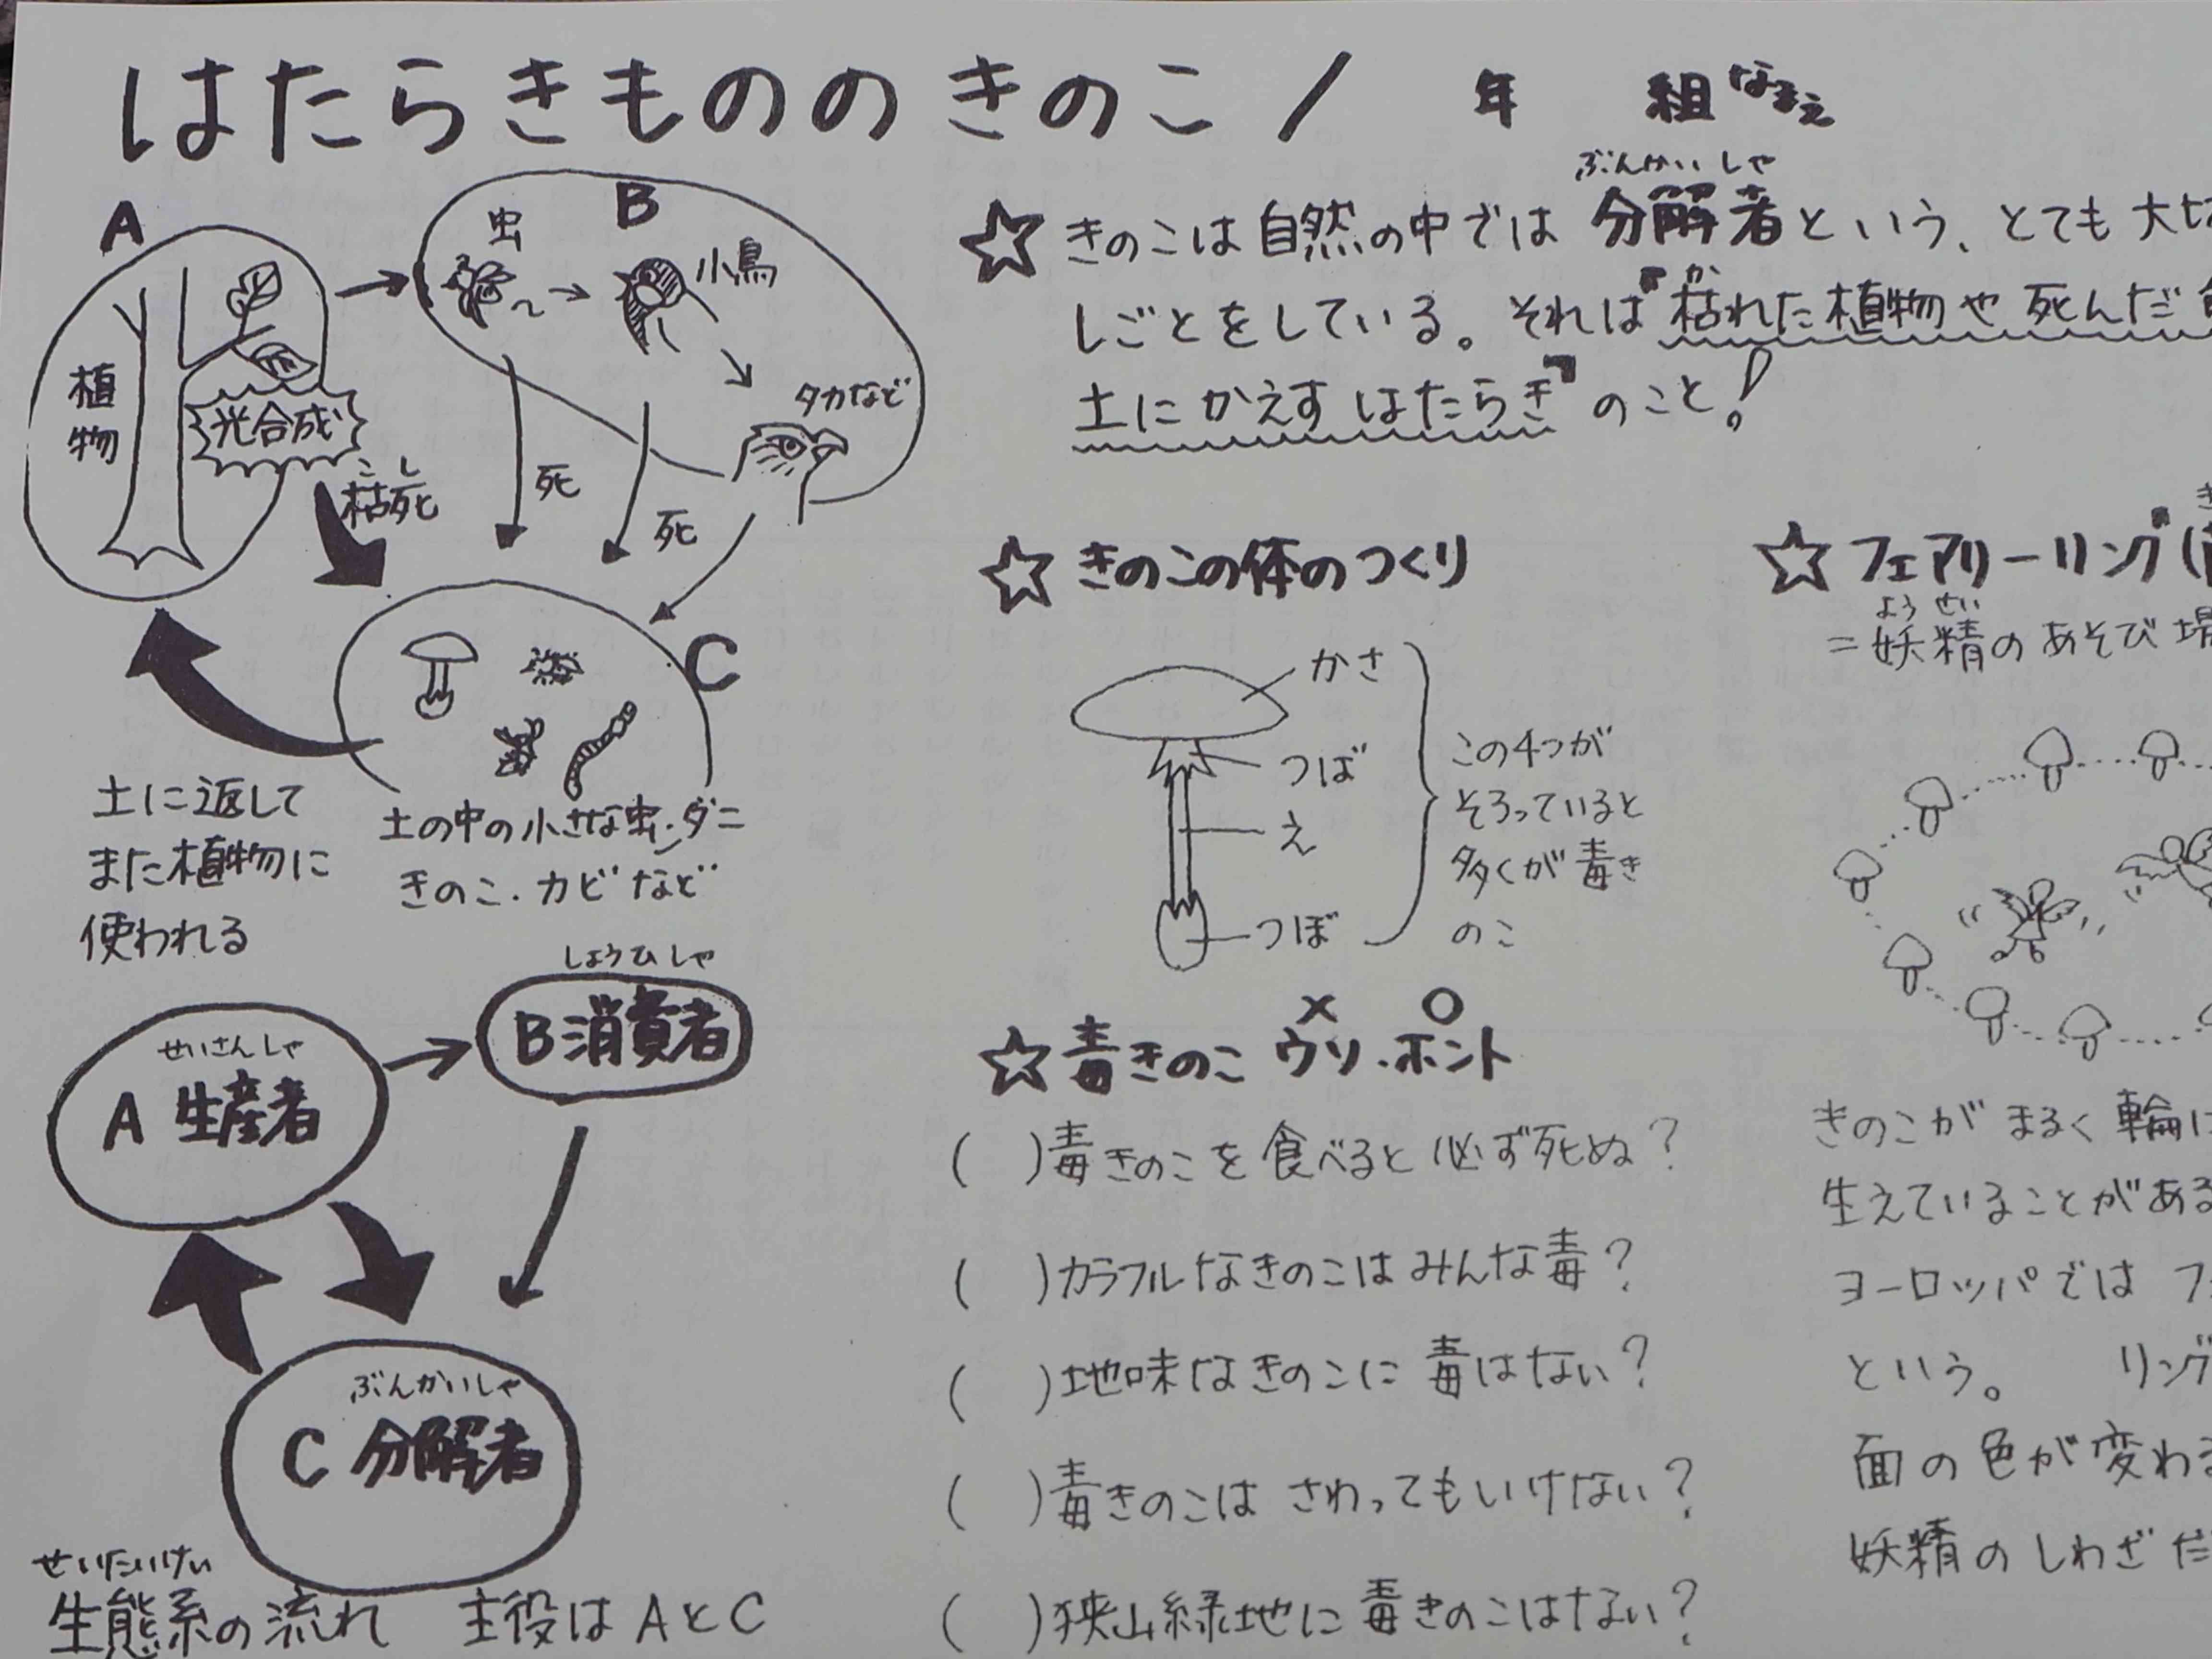 はたらきもののきのこ！ 年 組 なまえ
A
植物
光合成
こし
枯死
B
虫
小鳥
タカなど
死
死
C
土の中の小さな虫・ダニ
きのこ・カビなど
土に返して
また植物に
使われる
せいさんしゃ
A 生産者
しょうひしゃ
B 消費者
ぶんかいしゃ
C 分解者
せいたいけい
生態系の流れ 主役はAとC
ぶんかいしゃ
☆きのこは自然の中では分解者という、とても大切
か
しごとをしている。それは『枯れた植物や死んだ
土にかえすはたらき』のこと！
☆きのこの体のつくり
かさ
つば
え
つぼ
この4つが
そろっていると
多くが毒き
のこ
× ○
☆毒きのこ ウソ・ホント
( )毒きのこを食べると必ず死ぬ？
( )カラフルなきのこはみんな毒？
( )地味なきのこに毒はない？
( )毒きのこはさわってもいけない？
( )狭山緑地に毒きのこはない？
☆フェアリーリング(
ようせい
=妖精のあそび場
きのこがまるく輪に
生えていることがある
ヨーロッパではフ
という。 リング
面の色が変わる
妖精のしわざだ